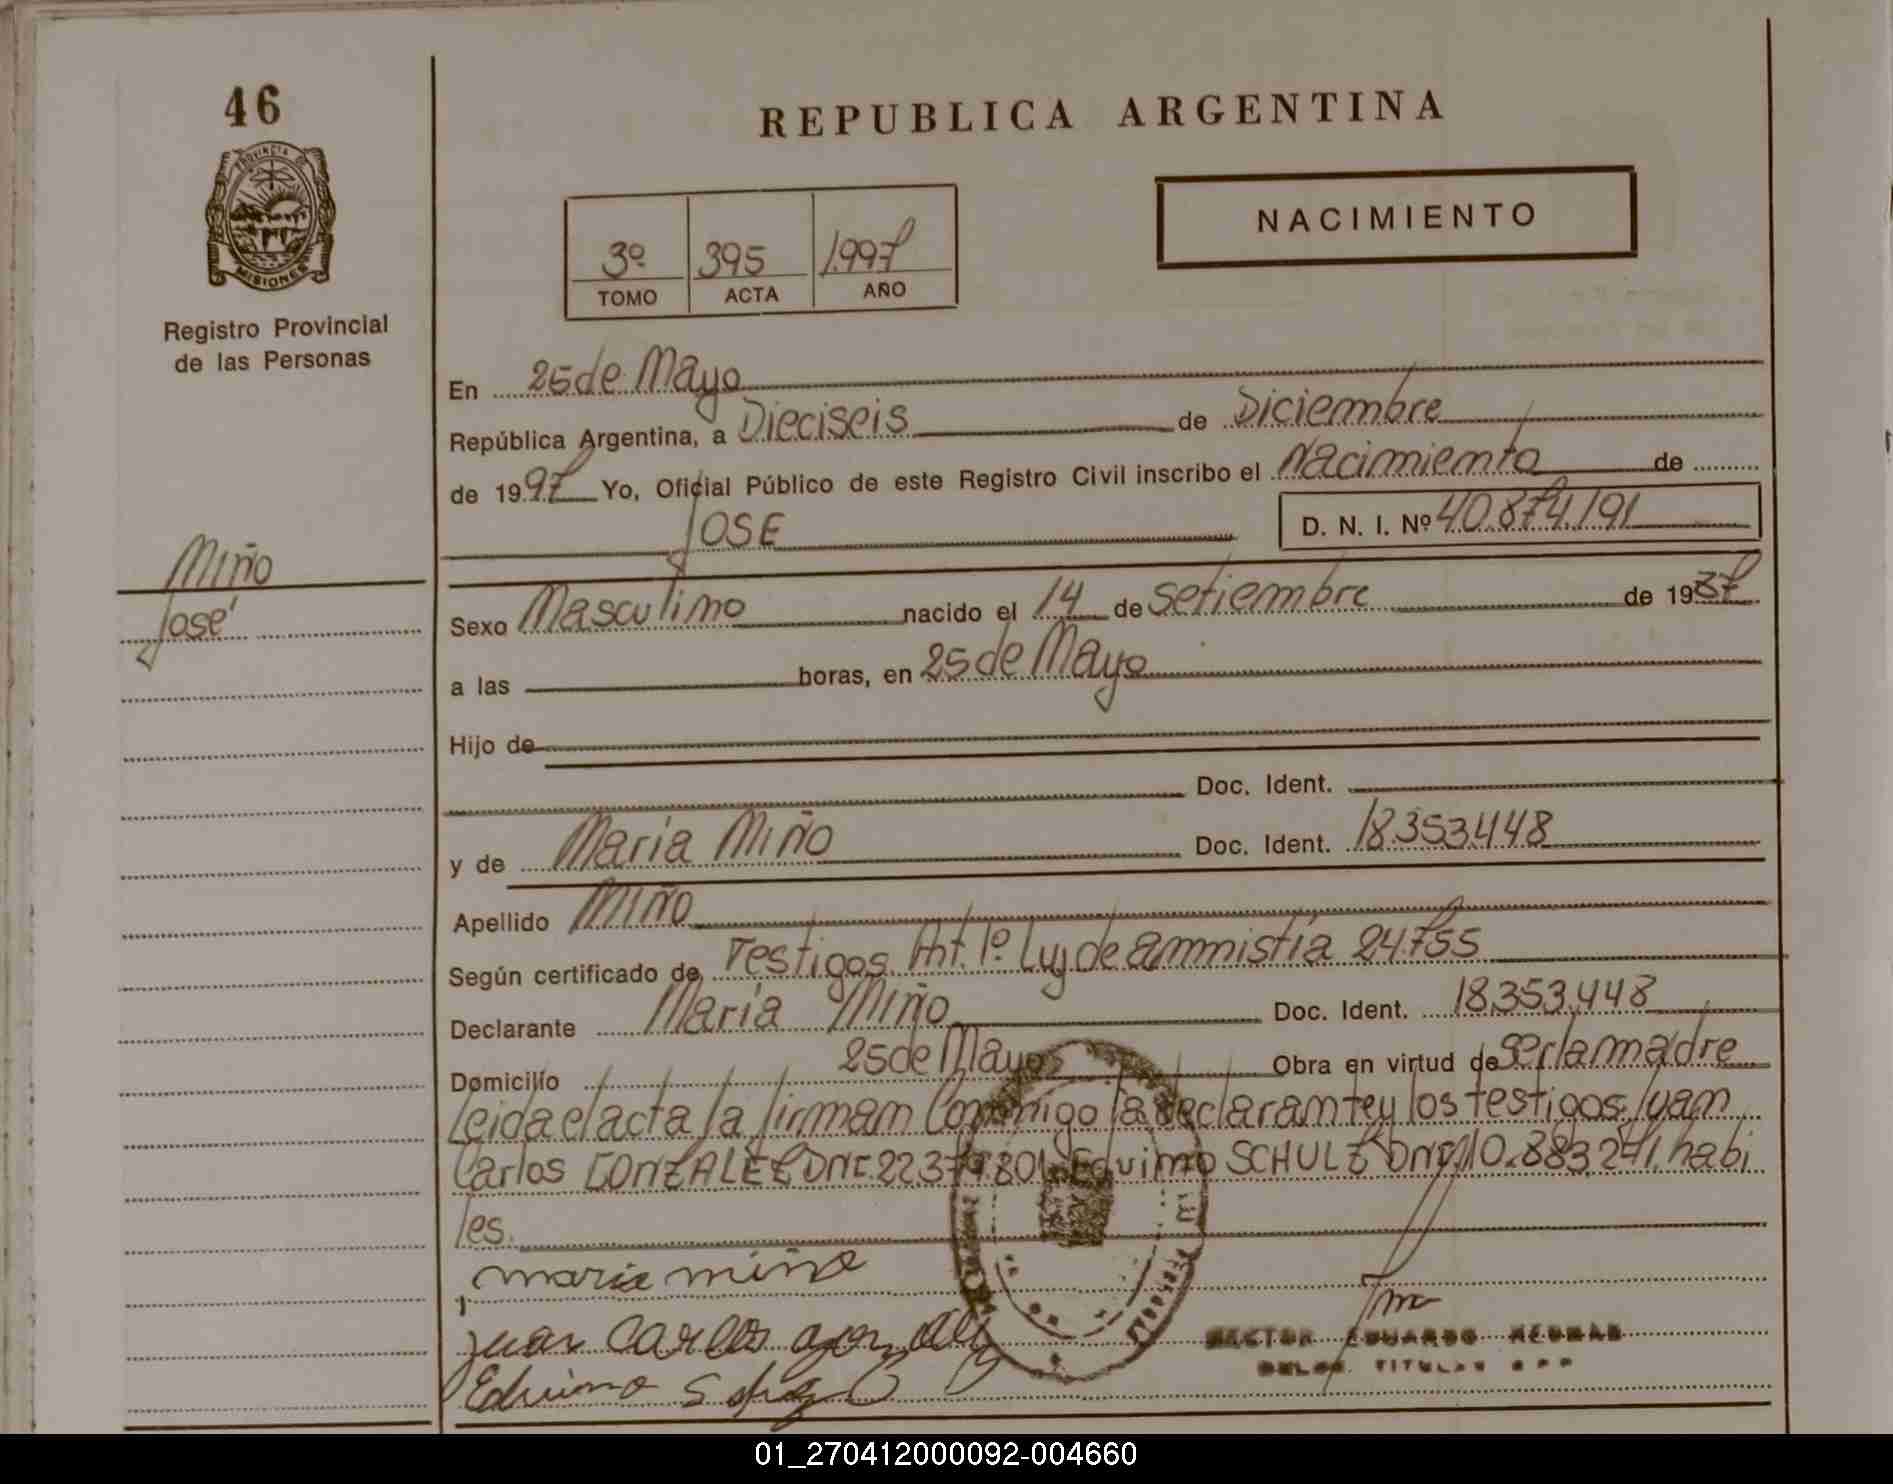 46
PROVINCIA DE
MISIONES
Registro Provincial
de las Personas
Miño
José
REPUBLICA ARGENTINA
NACIMIENTO
3º 395 1.997
TOMO ACTA AÑO
En 25 de Mayo
República Argentina, a Dieciseis de Diciembre
de 1997 Yo, Oficial Público de este Registro Civil inscribo el Nacimiento de
JOSE D. N. I. Nº 40.874.191
Sexo Masculino nacido el 14 de Setiembre de 19
a las horas, en 25 de Mayo
Hijo de
Doc. Ident.
y de María Miño Doc. Ident. 18.353.448
Apellido Miño
Según certificado de Testigos Art. 1º Ley de amnistía 24.755
Declarante María Miño Doc. Ident. 18.353.448
Domicilio 25 de Mayo Obra en virtud de ser la madre
Leida el acta la firman Conmigo la declarante y los testigos Juan
Carlos GONZALEZ DNI. 22.379.801. Eduimo SCHULZ DNI. 10.883.271. habi
les.
maria miño
Juan Carlos
Eduimo
HECTOR EDUARDO
TITULAR
01_270412000092-004660